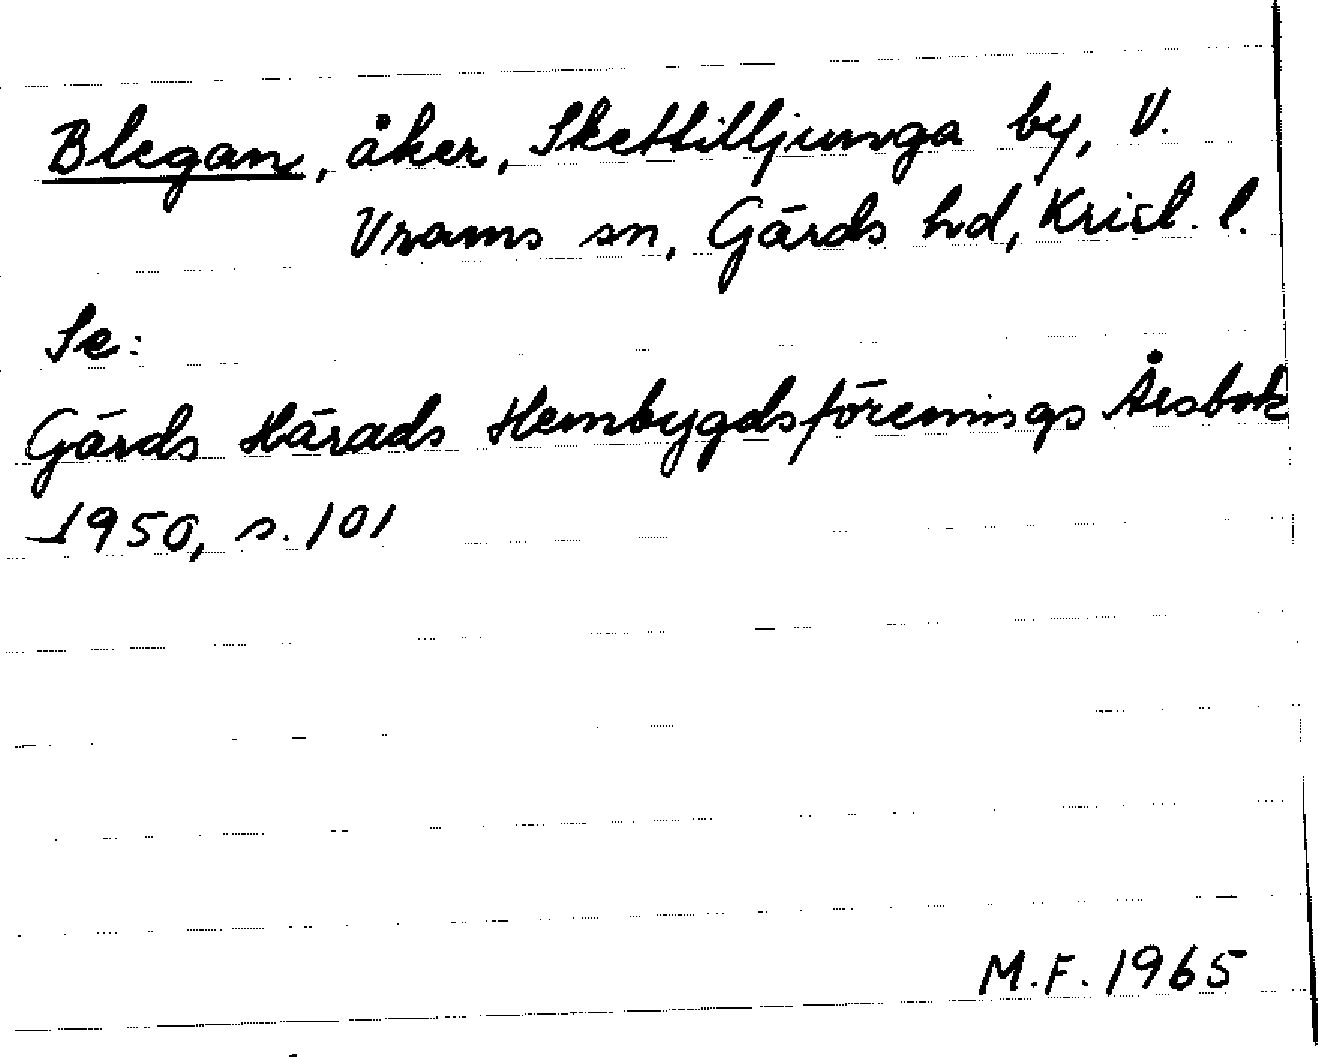 Blegan, åker, Skettilljunga by, V.
Vrams sn, Gärds hd, Krist. l.
Se:
Gärds Härads Hembygdsförenings Årsbok
1950, s. 101
M.F. 1965